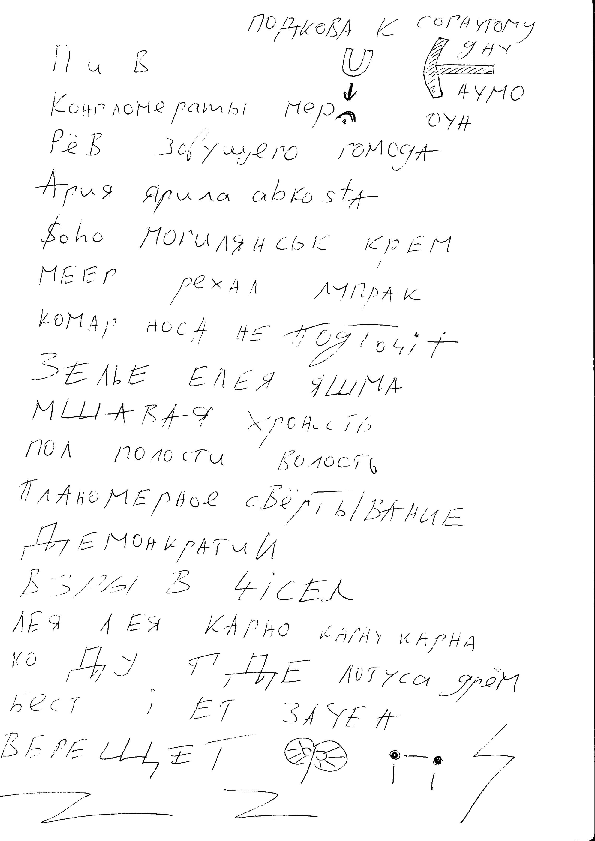 ПОДКОВА К СОГНУТОМУ
ДНУ
П и В
АУМО
Конгломераты мер
ОУН
Рёв зовущего гомода
Ария ярила abko stA
$oho МОГИЛЯНСЬК КРЕМ
МЕЕР рехал ЛУПРАК
КОМАР НОСА НЕ ПОДТОЧiТ
ЗЕЛЬЕ ЕЛЕЯ ЯШМА
МШАВА-Я ХРОНСТЬ
ПОЛ ПОЛОСТИ ВОЛОСТЬ
ПЛАНОМЕРНОЕ СВЁРТЫВАНИЕ
ДЕМОНКРАТИЙ
ВЗРЫВ ЧiСЕЛ
ЛЕЯ ЛЕЯ КАРНО КАРАУ КАРНА
КО ДУ ГДЕ ЛОТУСА ДРЁМ
ЬЕСТ i ЕТ
ВЕРЕЩЕТ